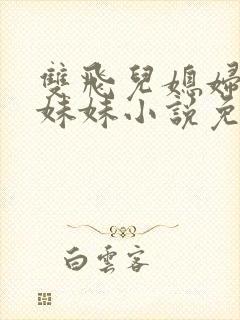 雙飛兒媳婦
妹妹小說免
白雲客